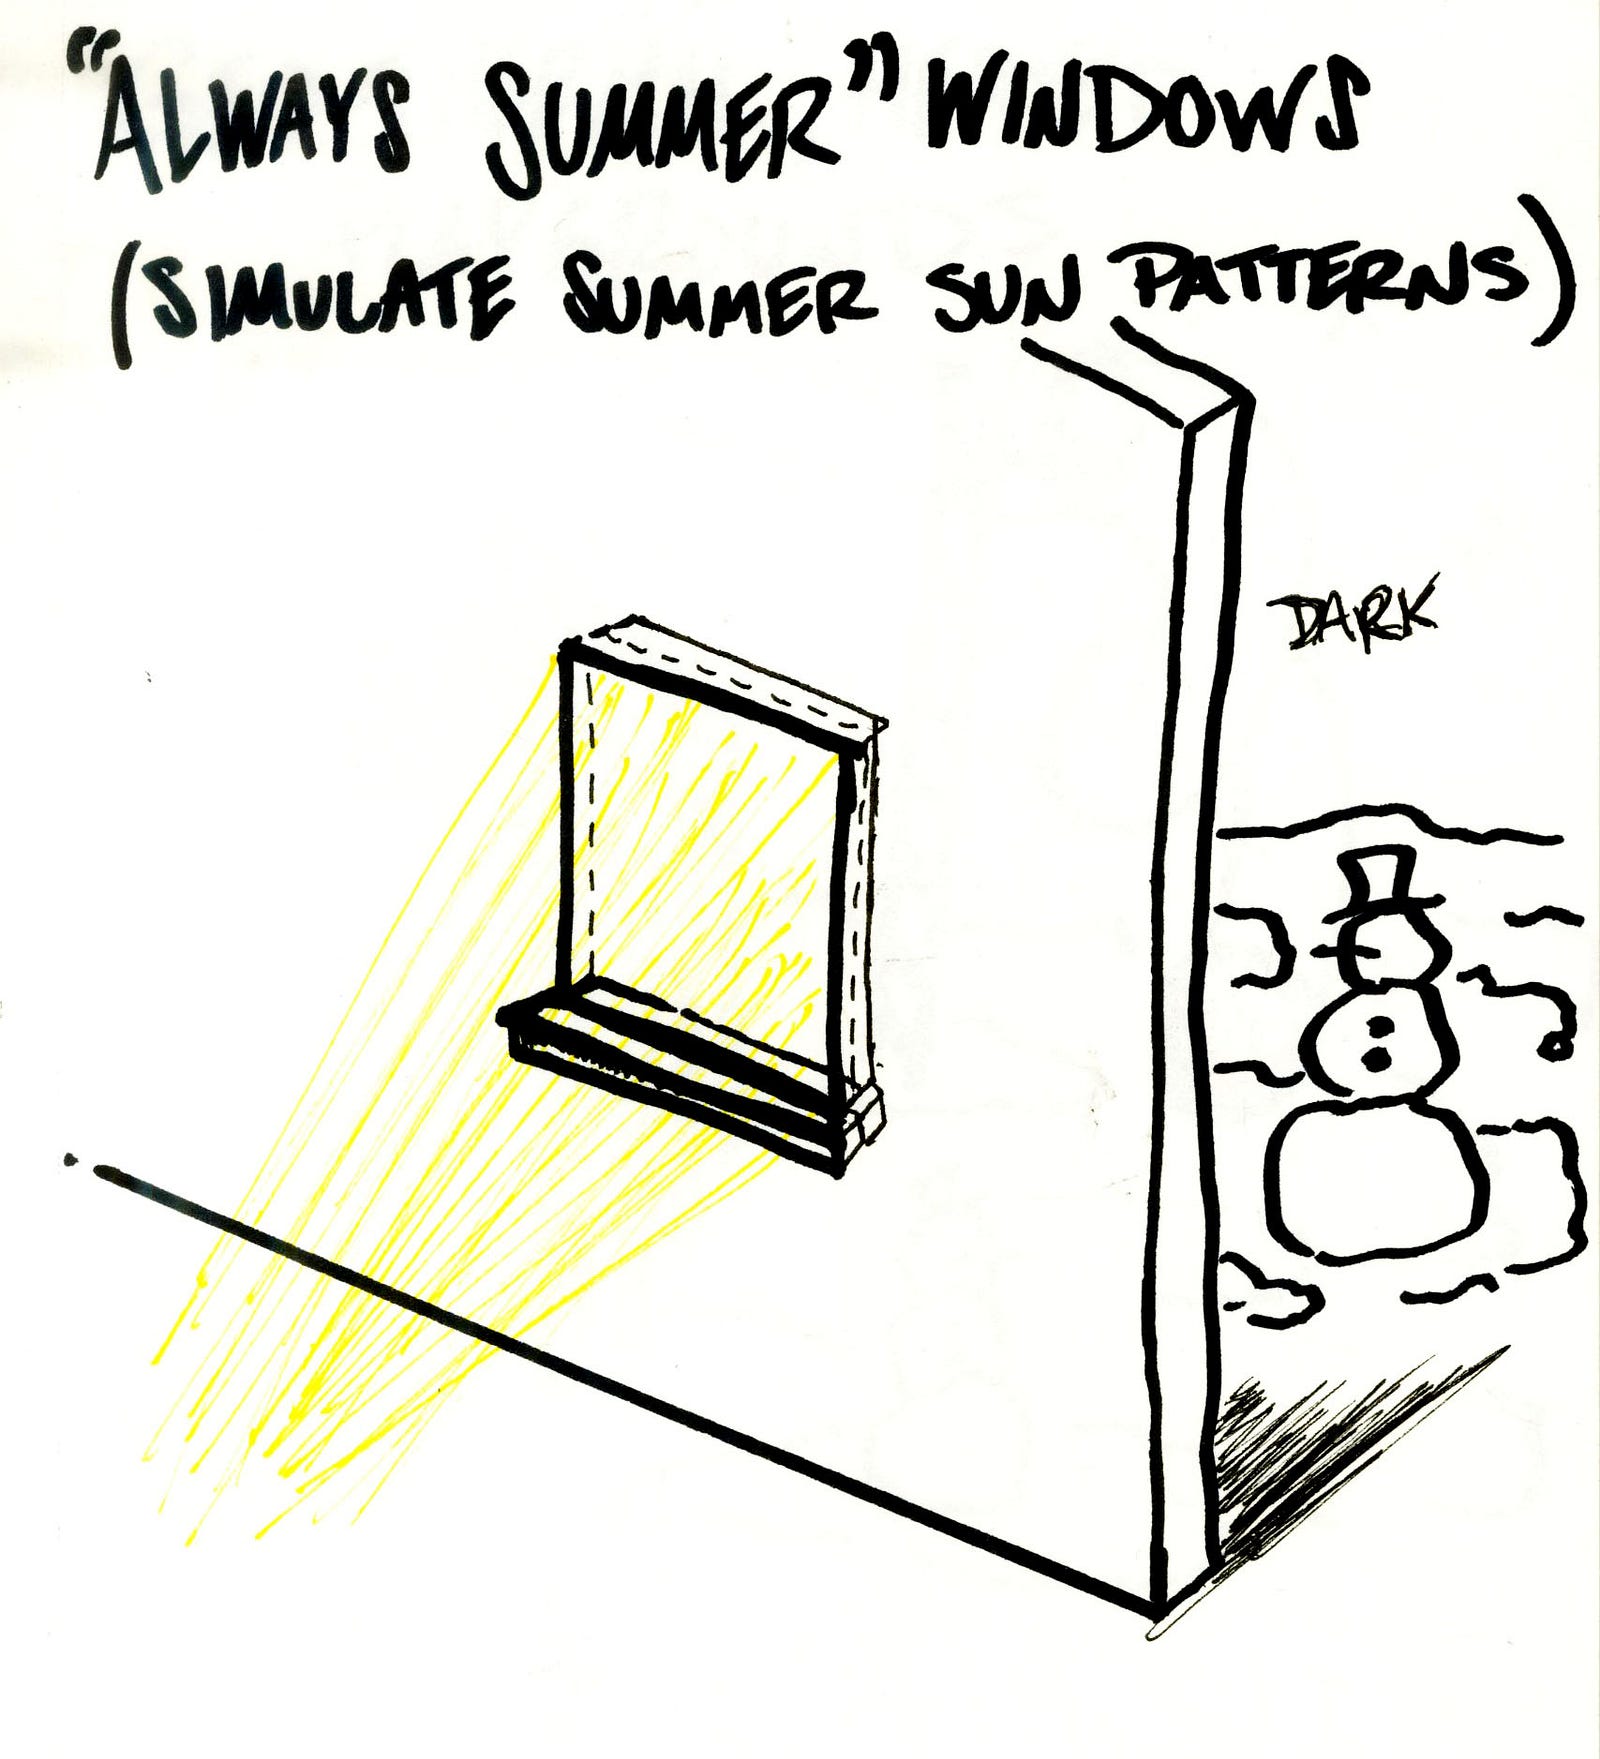 "ALWAYS SUMMER" WINDOWS
(SIMULATE SUMMER SUN PATTERNS)
DARK